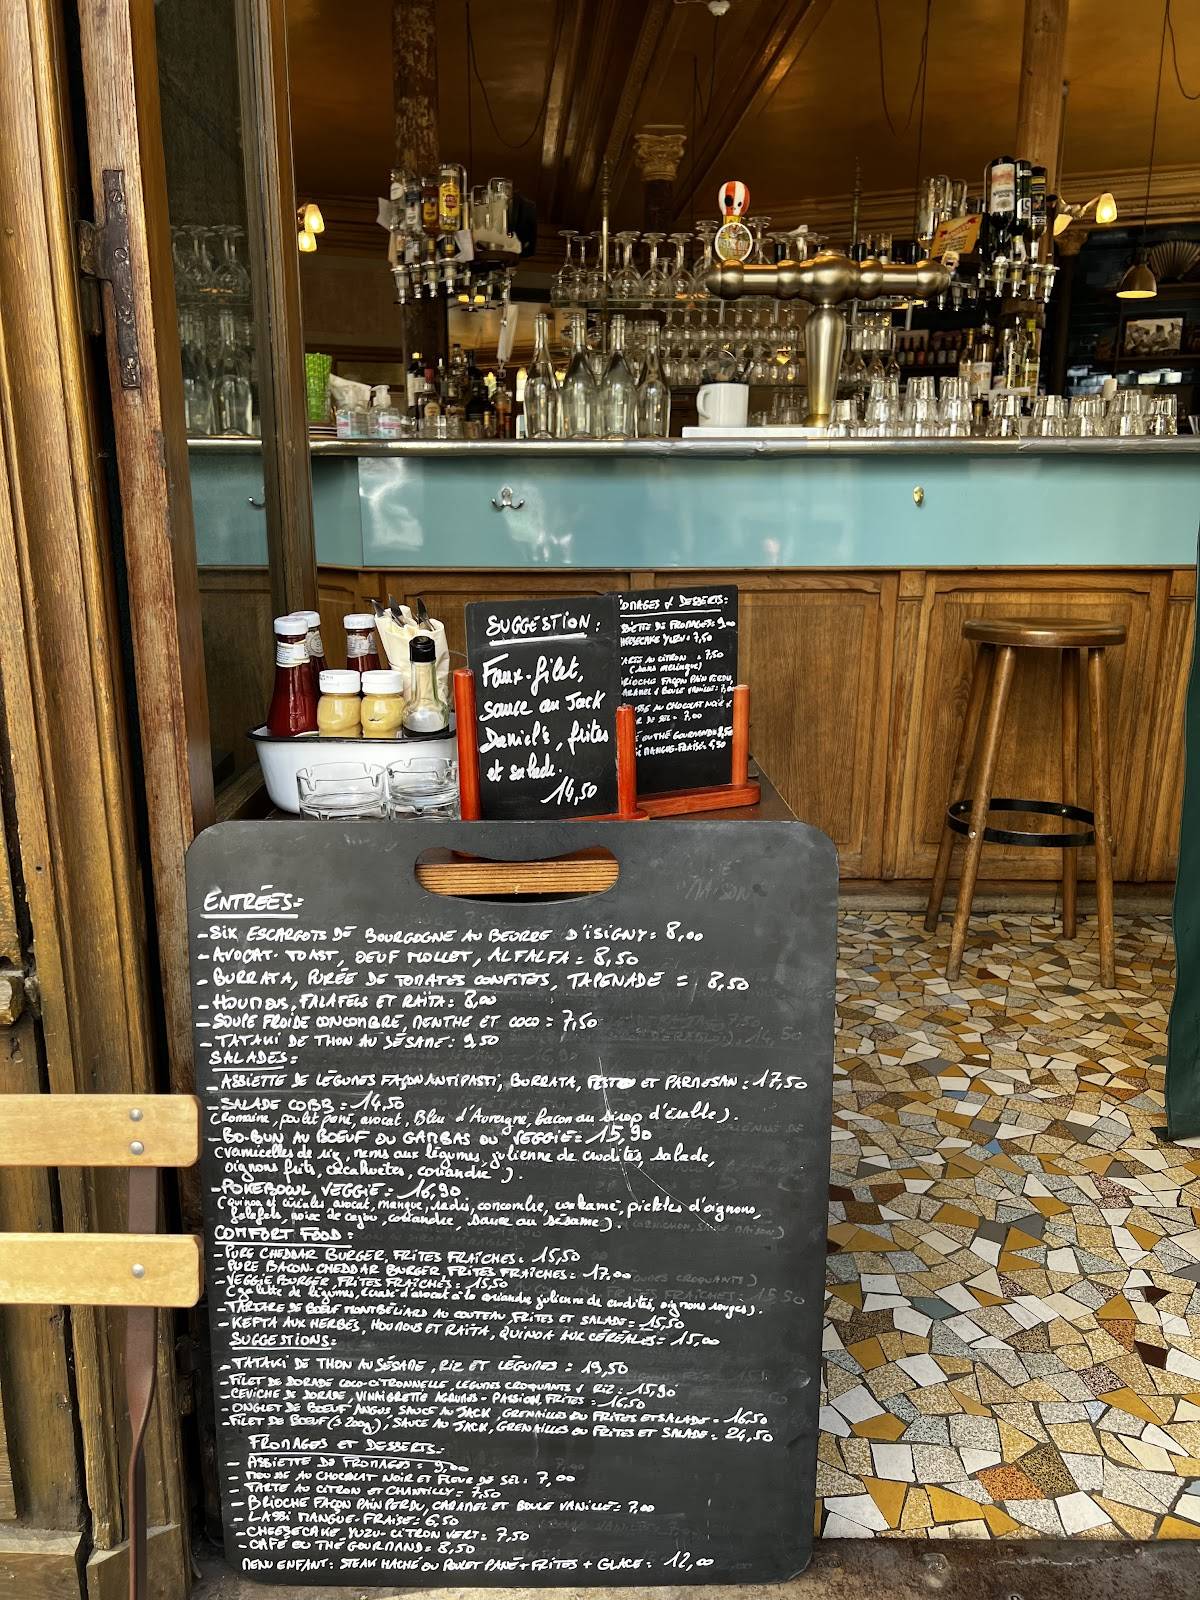 SUGGESTION:
Faux-filet,
sauce au Jack
Daniel's, frites
et salade.
14,50
FROMAGES & DESSERTS:
ASSIETTE DE FROMAGES: 9,00
CHEESECAKE YUZU: 7,50
TARTE AU CITRON : 7,50
(sans meringue)
BRIOCHE FAÇON PAIN PERDU,
CARAMEL & BOULE VANILLE: 7,00
MOUSSE AU CHOCOLAT NOIR &
FLEUR DE SEL: 7,00
CAFÉ OU THÉ GOURMAND: 8,50
LASSI MANGUE-FRAISE: 6,50
ENTRÉES:
-SIX ESCARGOTS DE BOURGOGNE AU BEURRE D'ISIGNY: 8,00
-AVOCAT-TOAST, OEUF MOLLET, ALFALFA = 8,50
-BURRATA, PURÉE DE TOMATES CONFITES, TAPENADE = 8,50
-HOUMOUS, FALAFELS ET RAÏTA: 8,00
-SOUPE FROIDE CONCOMBRE, MENTHE ET COCO = 7,50
-TATAKI DE THON AU SÉSAME: 9,50
SALADES:
-ASSIETTE DE LÉGUMES FAÇON ANTIPASTI, BURRATA, PESTO ET PARMESAN: 17,50
-SALADE COBB: 14,50
(Romaine, poulet pané, avocat, Bleu d'Auvergne, bacon au sirop d'érable).
-BO-BUN AU BOEUF OU GAMBAS OU VEGGIE: 15,90
(Vermicelles de riz, nems aux légumes, julienne de crudités, salade,
oignons frits, cacahuètes, coriandre).
-POKEBOWL VEGGIE: 16,90
(Quinoa et céréales avocat, mangue, radis, concombre, wakamé, pickles d'oignons,
falafels, noix de cajou, coriandre, sauce au sésame).
COMFORT FOOD:
-PURE CHEDDAR BURGER, FRITES FRAÎCHES: 15,50
-PURE BACON-CHEDDAR BURGER FRITES FRAÎCHES: 17,00
-VEGGIE BURGER, FRITES FRAÎCHES: 15,50
(galette de légumes, écrasé d'avocat à la coriandre, julienne de crudités, oignons rouges).
-TARTARE DE BOEUF MONTBÉLIARD AU COUTEAU, FRITES ET SALADE: 15,50
-KEFTA AUX HERBES, HOUMOUS ET RAÏTA, QUINOA AUX CÉRÉALES: 15,00
SUGGESTIONS:
-TATAKI DE THON AU SÉSAME, RIZ ET LÉGUMES = 19,50
-FILET DE DORADE COCO-CITRONNELLE, LÉGUMES CROQUANTS & RIZ: 15,90
-CEVICHE DE DORADE, VINAIGRETTE AGRUMES-PASSION, FRITES: 16,50
-ONGLET DE BOEUF ANGUS SAUCE AU JACK, GRENAILLES OU FRITES ET SALADE: 16,50
-FILET DE BOEUF (±200g), SAUCE AU JACK, GRENAILLES OU FRITES ET SALADE: 24,50
FROMAGES ET DESSERTS:
-ASSIETTE DE FROMAGES: 9,00
-MOUSSE AU CHOCOLAT NOIR ET FLEUR DE SEL: 7,00
-TARTE AU CITRON ET CHANTILLY: 7,50
-BRIOCHE FAÇON PAIN PERDU, CARAMEL ET BOULE VANILLE: 7,00
-LASSI MANGUE-FRAISE: 6,50
-CHEESECAKE YUZU-CITRON VERT: 7,50
-CAFÉ OU THÉ GOURMAND: 8,50
MENU ENFANT: STEAK HACHÉ OU POULET PANÉ + FRITES + GLACE: 12,00